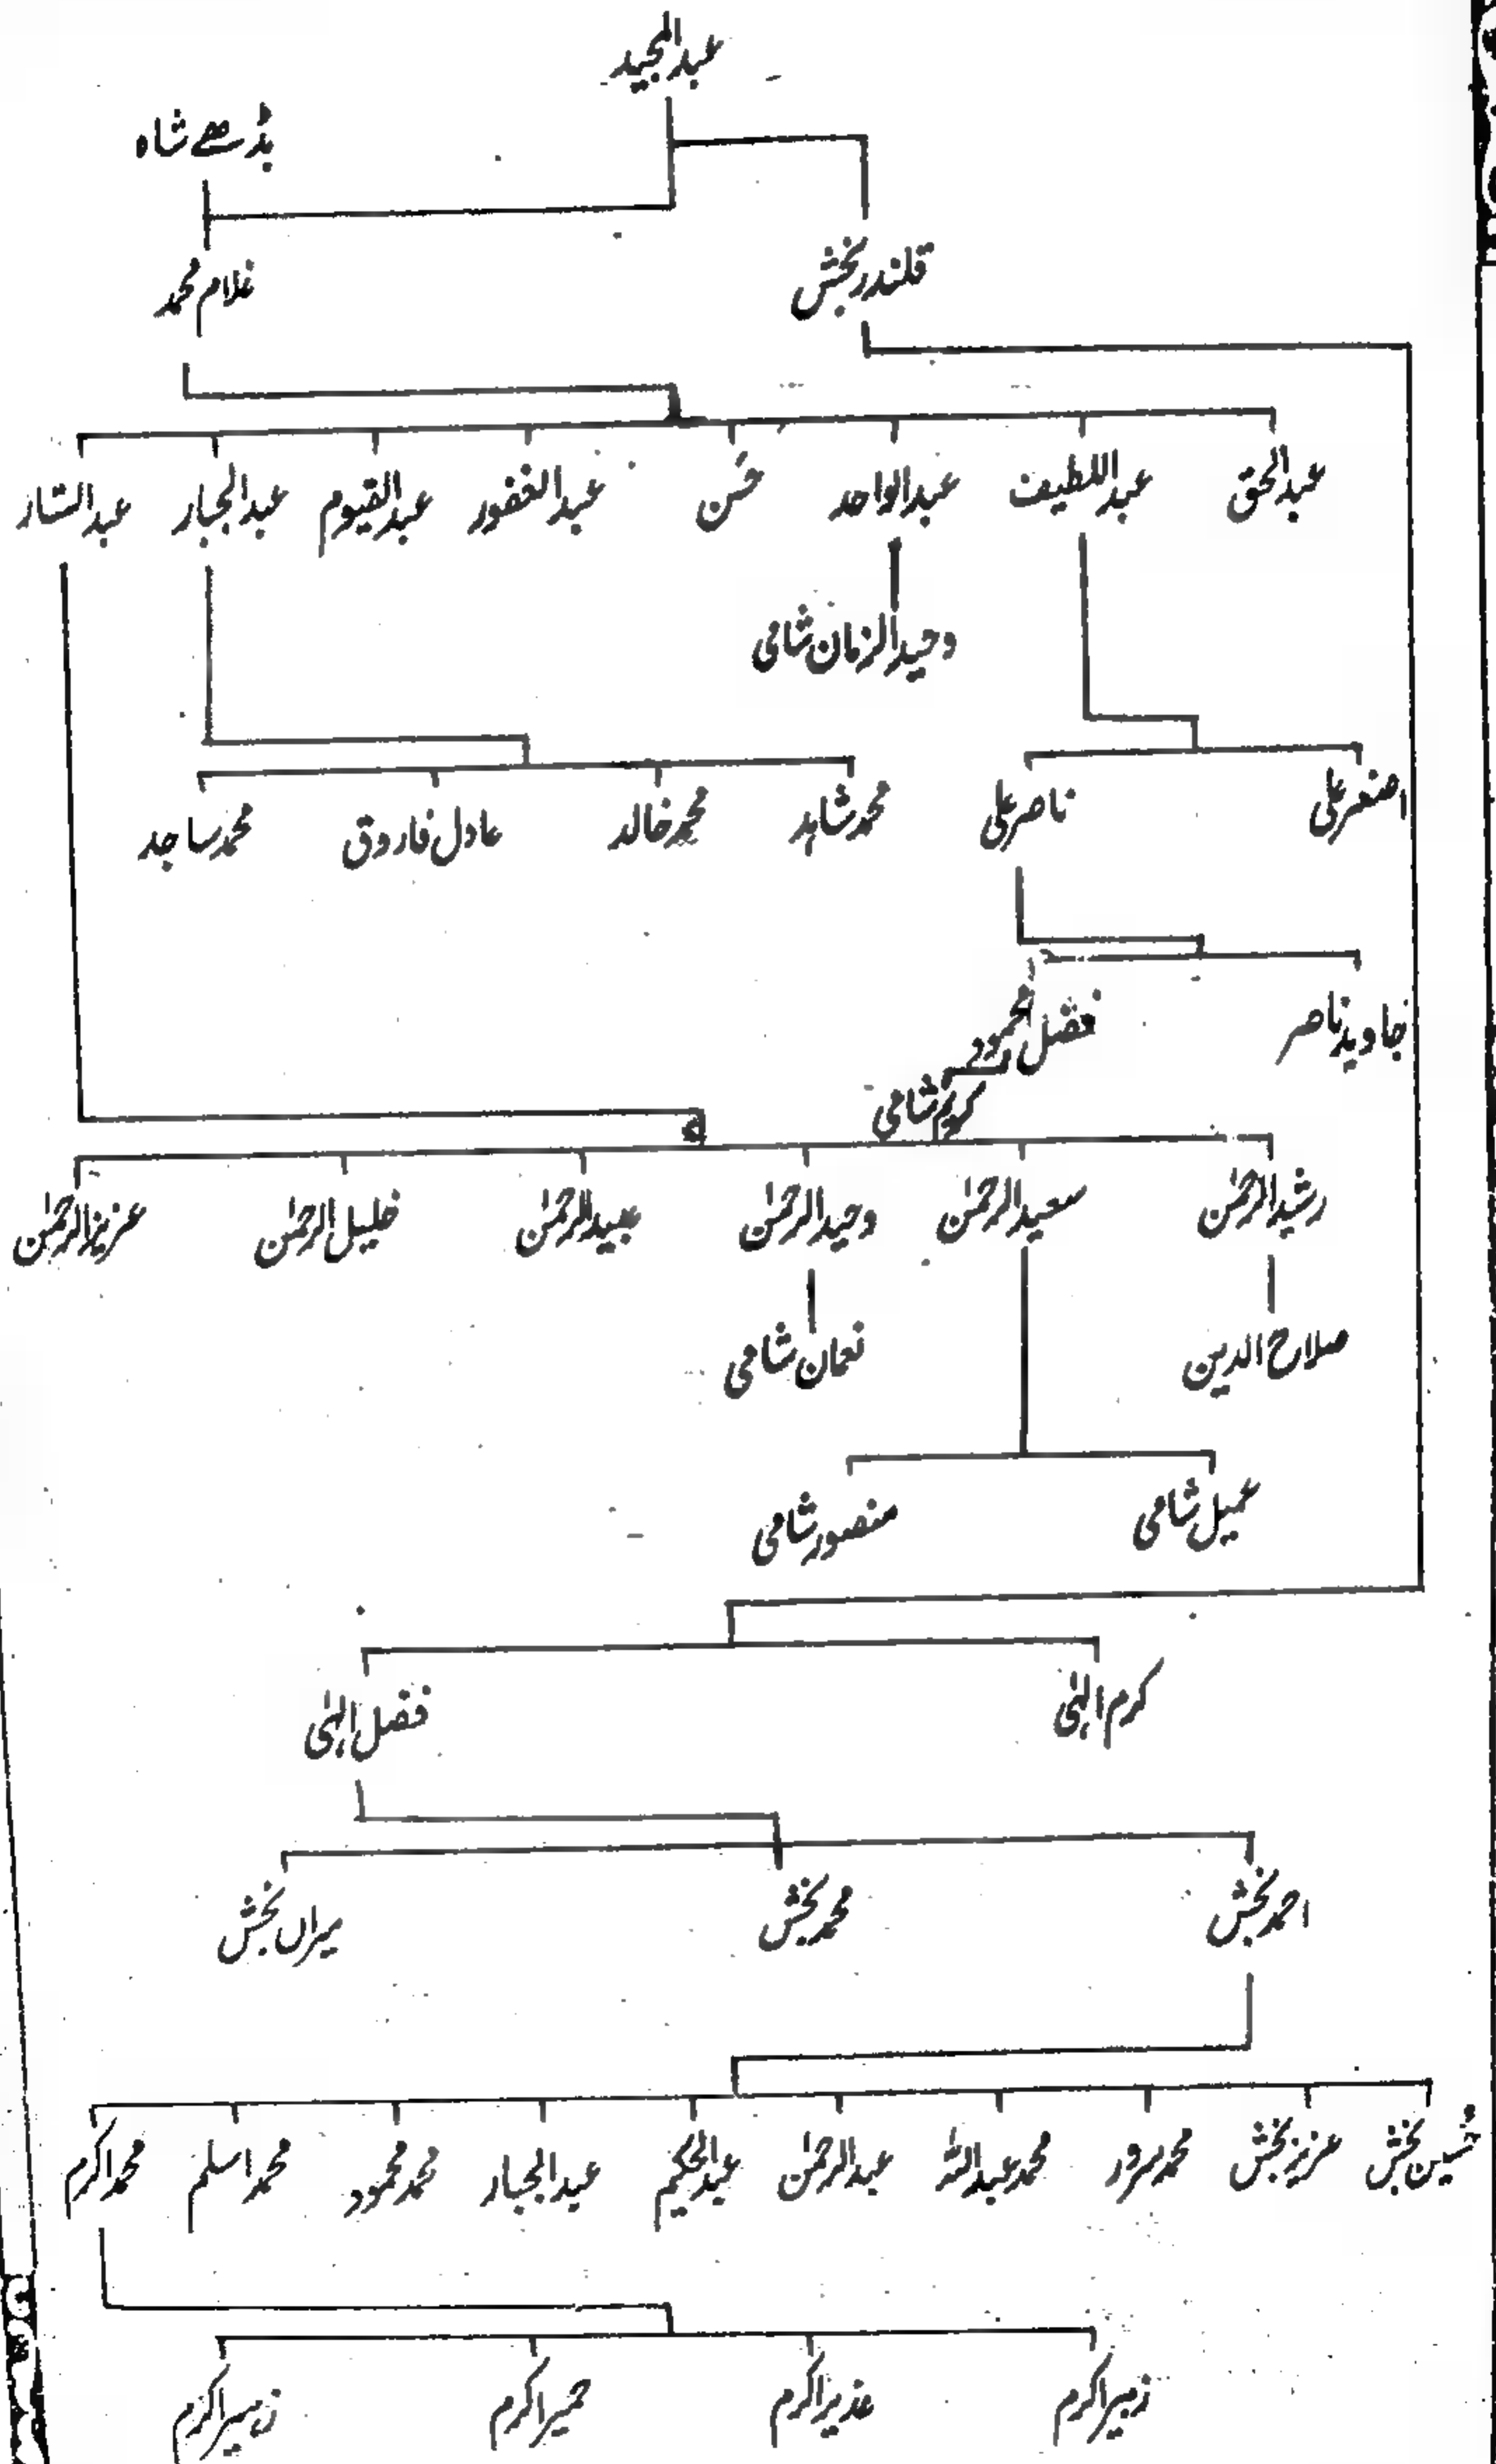 عبدالمجید
بڈھے شاہ
قلندر بخش
غلام محمد
عبدالحق
عبداللطیف
عبدالواحد
حسن
عبدالغفور
عبدالقیوم
عبدالجبار
عبدالستار
وحید الزمان شامی
اصغر علی
ناصر علی
محمد شاہد
محمد خالد
عادل فاروق
محمد ساجد
جاوید ناصر
فضل محمود
کریم شامی
رشید الرحمٰن
سعید الرحمٰن
وحید الرحمٰن
عبید الرحمٰن
خلیل الرحمٰن
عزیز الرحمٰن
صلاح الدین
نعمان شامی
عمیل شامی
منصور شامی
کرم الٰہی
فضل الٰہی
احمد بخش
محمد بخش
میراں بخش
حسین بخش
عزیز بخش
محمد سرور
محمد عبداللہ
عبدالرحمٰن
عبدالحکیم
عبدالجبار
محمد محمود
محمد اسلم
محمد اکرم
زبیر اکرم
عذیر اکرم
حمیر اکرم
زمیر اکرم